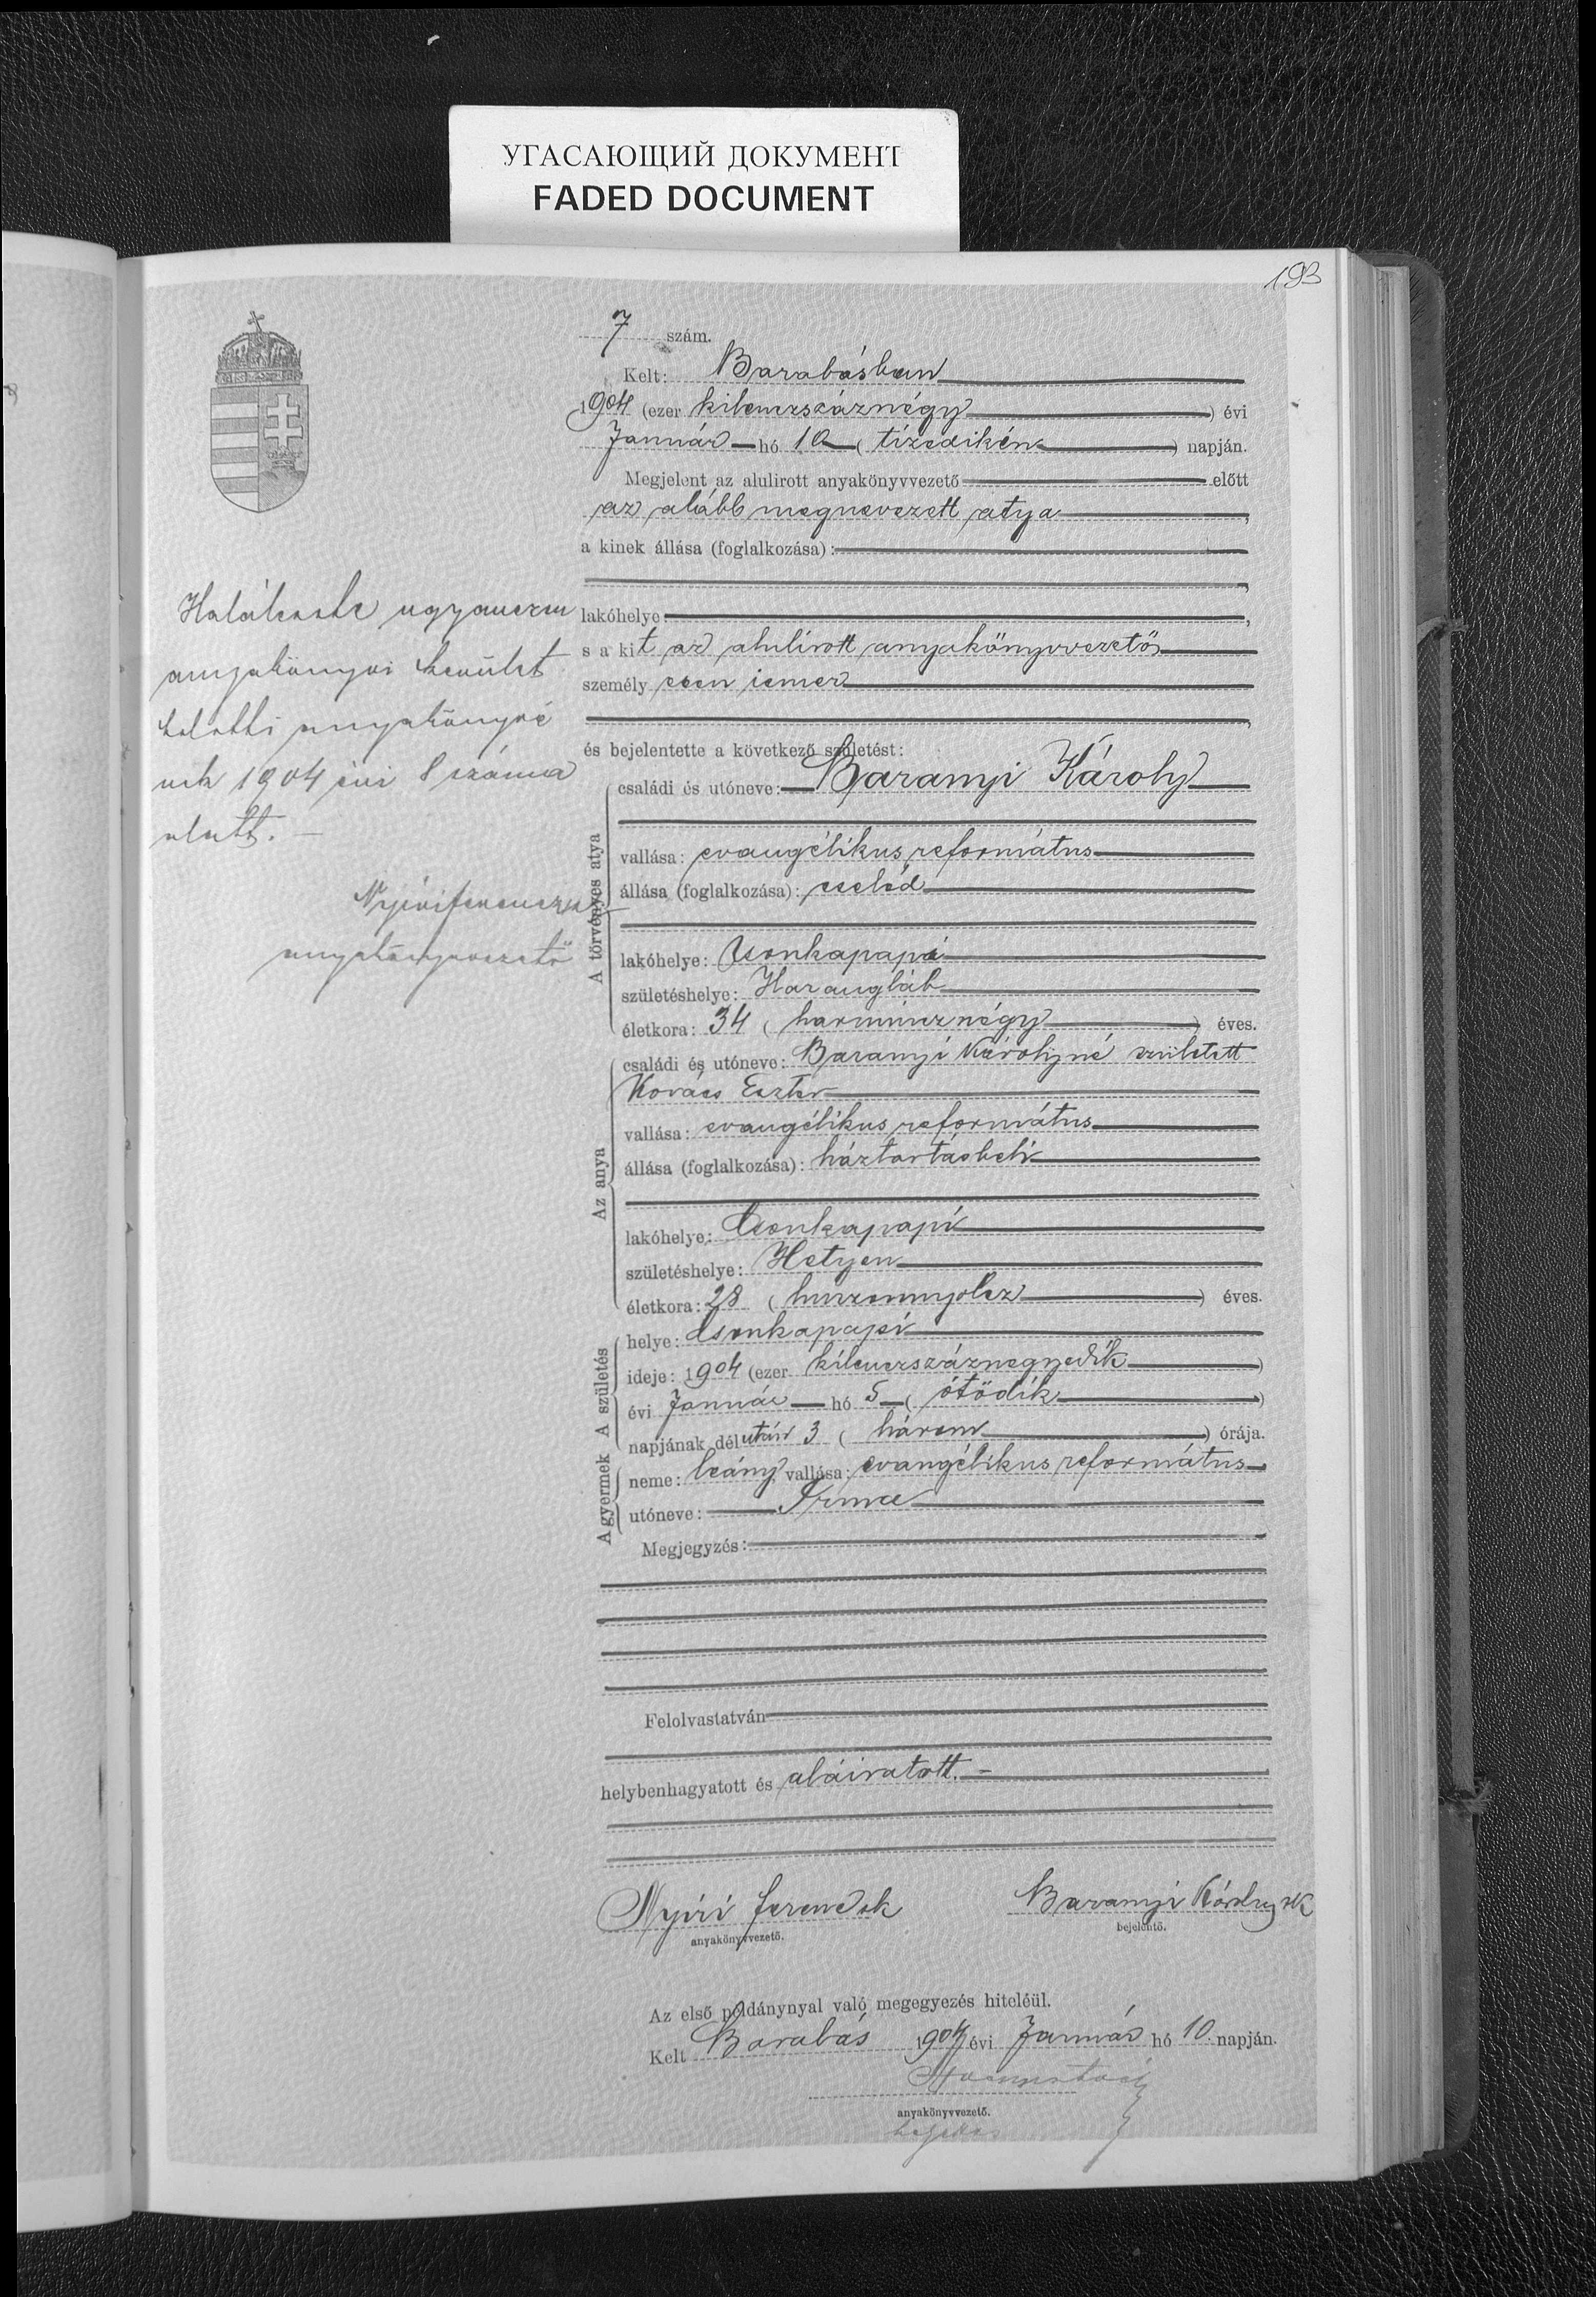 УГАСАЮЩИЙ ДОКУМЕНТ
FADED DOCUMENT
193
7 szám.
Kelt: Barabásban
1904 (ezer kilenczszáznégy) évi
Január hó 10 (tizedikén) napján.
Megjelent az alulirott anyakönyvvezető előtt
az alább megnevezett atya,
a kinek állása (foglalkozása):
lakóhelye:
s a kit az alulírott anyakönyvvezető
személyesen ismer
és bejelentette a következő születést:
A törvényes atya
családi és utóneve: Baranyi Károly
vallása: evangélikus református
állása (foglalkozása): cseléd
lakóhelye: Csonkapapi
születéshelye: Harangláb
életkora: 34 (harmincznégy) éves.
Az anya
családi és utóneve: Baranyi Károlyné született
Kovács Eszter
vallása: evangélikus református
állása (foglalkozása): háztartásbeli
lakóhelye: Csonkapapi
születéshelye: Hetyen
életkora: 28 (huszonnyolcz) éves.
A születés
helye: Csonkapapi
ideje: 1904 (ezer kilenczszáznegyedik)
évi Január hó 5 (ötödik)
napjának délután 3 (három) órája.
A gyermek
neme: leány vallása: evangélikus református
utóneve: Irma
Megjegyzés:
Felolvastatván
helybenhagyatott és aláiratott.
Halálesete ugyanezen
anyakönyvi kerület
halotti anyakönyvé
nek 1904 évi 8 száma
alatt.
Nyíri ferencz sk
anyakönyvvezető
Nyíri ferencz sk
anyakönyvvezető.
Baranyi Károly sk
bejelentő.
Az első példánynyal való megegyezés hiteléül.
Kelt Barabás 1904 évi Január hó 10. napján.
anyakönyvvezető.
helyettes